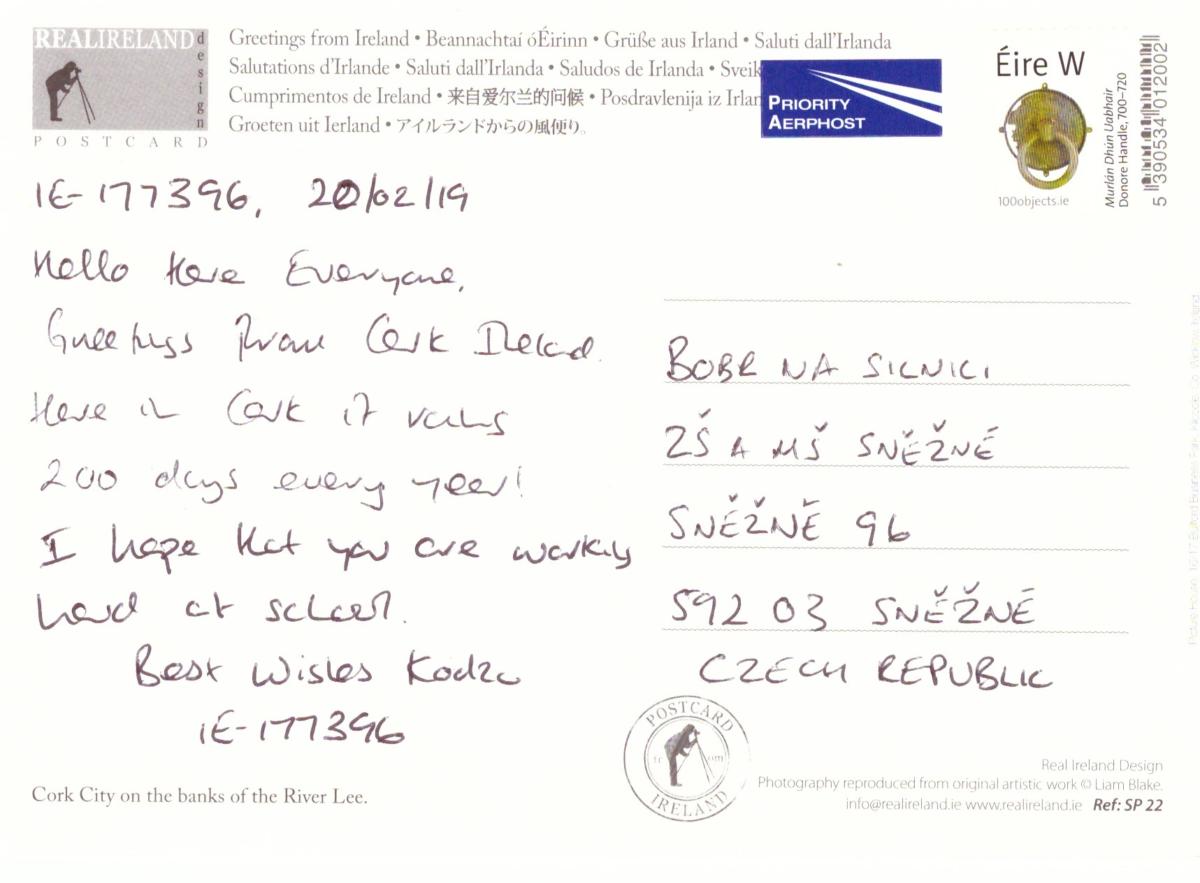 REALIRELAND
design
POSTCARD
Greetings from Ireland • Beannachtaí óÉirinn • Grüße aus Irland • Saluti dall'Irlanda
Salutations d'Irlande • Saluti dall'Irlanda • Saludos de Irlanda • Sveik
Cumprimentos de Ireland • 来自爱尔兰的问候 • Posdravlenija iz Irlan
Groeten uit Ierland • アイルランドからの風便り。
PRIORITY
AERPHOST
Éire W
100objects.ie
Murlán Dhún Uabhair
Donore Handle, 700–720
5 390534 012002
IE-177396, 20/02/19
Hello Here Everyone,
Greetings From Cork Ireland.
Here in Cork it rains
200 days every year!
I hope that you are working
hard at school.
Best Wishes Kodzo
IE-177396
BOBR NA SILNICI
ZŠ A MŠ SNĚŽNÉ
SNĚŽNĚ 96
592 03 SNĚŽNÉ
CZECH REPUBLIC
POSTCARD
from
IRELAND
Cork City on the banks of the River Lee.
Real Ireland Design
Photography reproduced from original artistic work © Liam Blake.
info@realireland.ie www.realireland.ie Ref: SP 22